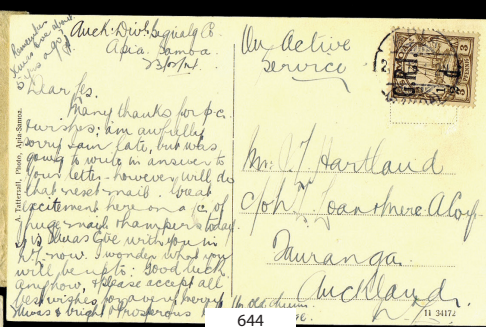 Remember
Xmas Eve
3 yrs ago?
Auck: Div'l Signalg Co.
Apia. Samoa.
23/12/14.
Dear Jes.
Many thanks for p.c.
& wishes; am awfully
sorry I am late, but was
going to write in answer to
your letter - however will do
that next mail. Great
excitement here on a/c of
huge mail & hampers today.
It is Xmas Eve with you in
N.Z. now. I wonder what you
will be up to: Good luck
anyhow, & please accept all
best wishes for a very merry
Xmas & bright & prosperous
A. Tattersall, Photo, Apia-Samoa.
On Active
Service
G.R.I.
1 d.
3
3
Mr. J Hartland
c/o Loan & Merc A Coy
Tauranga.
Auckland
N.Z.
11 34172
644